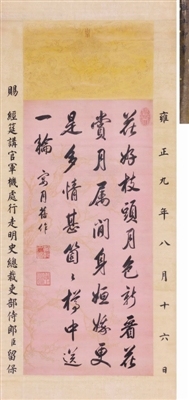 雍正九年八月十六日
花好枝頭月色新看花
賞月屬閒身姮娥更
是多情甚箇〻樽中送
一輪
寫月舊作
賜 經筵講官軍機處行走明史總裁吏部侍郎臣留保